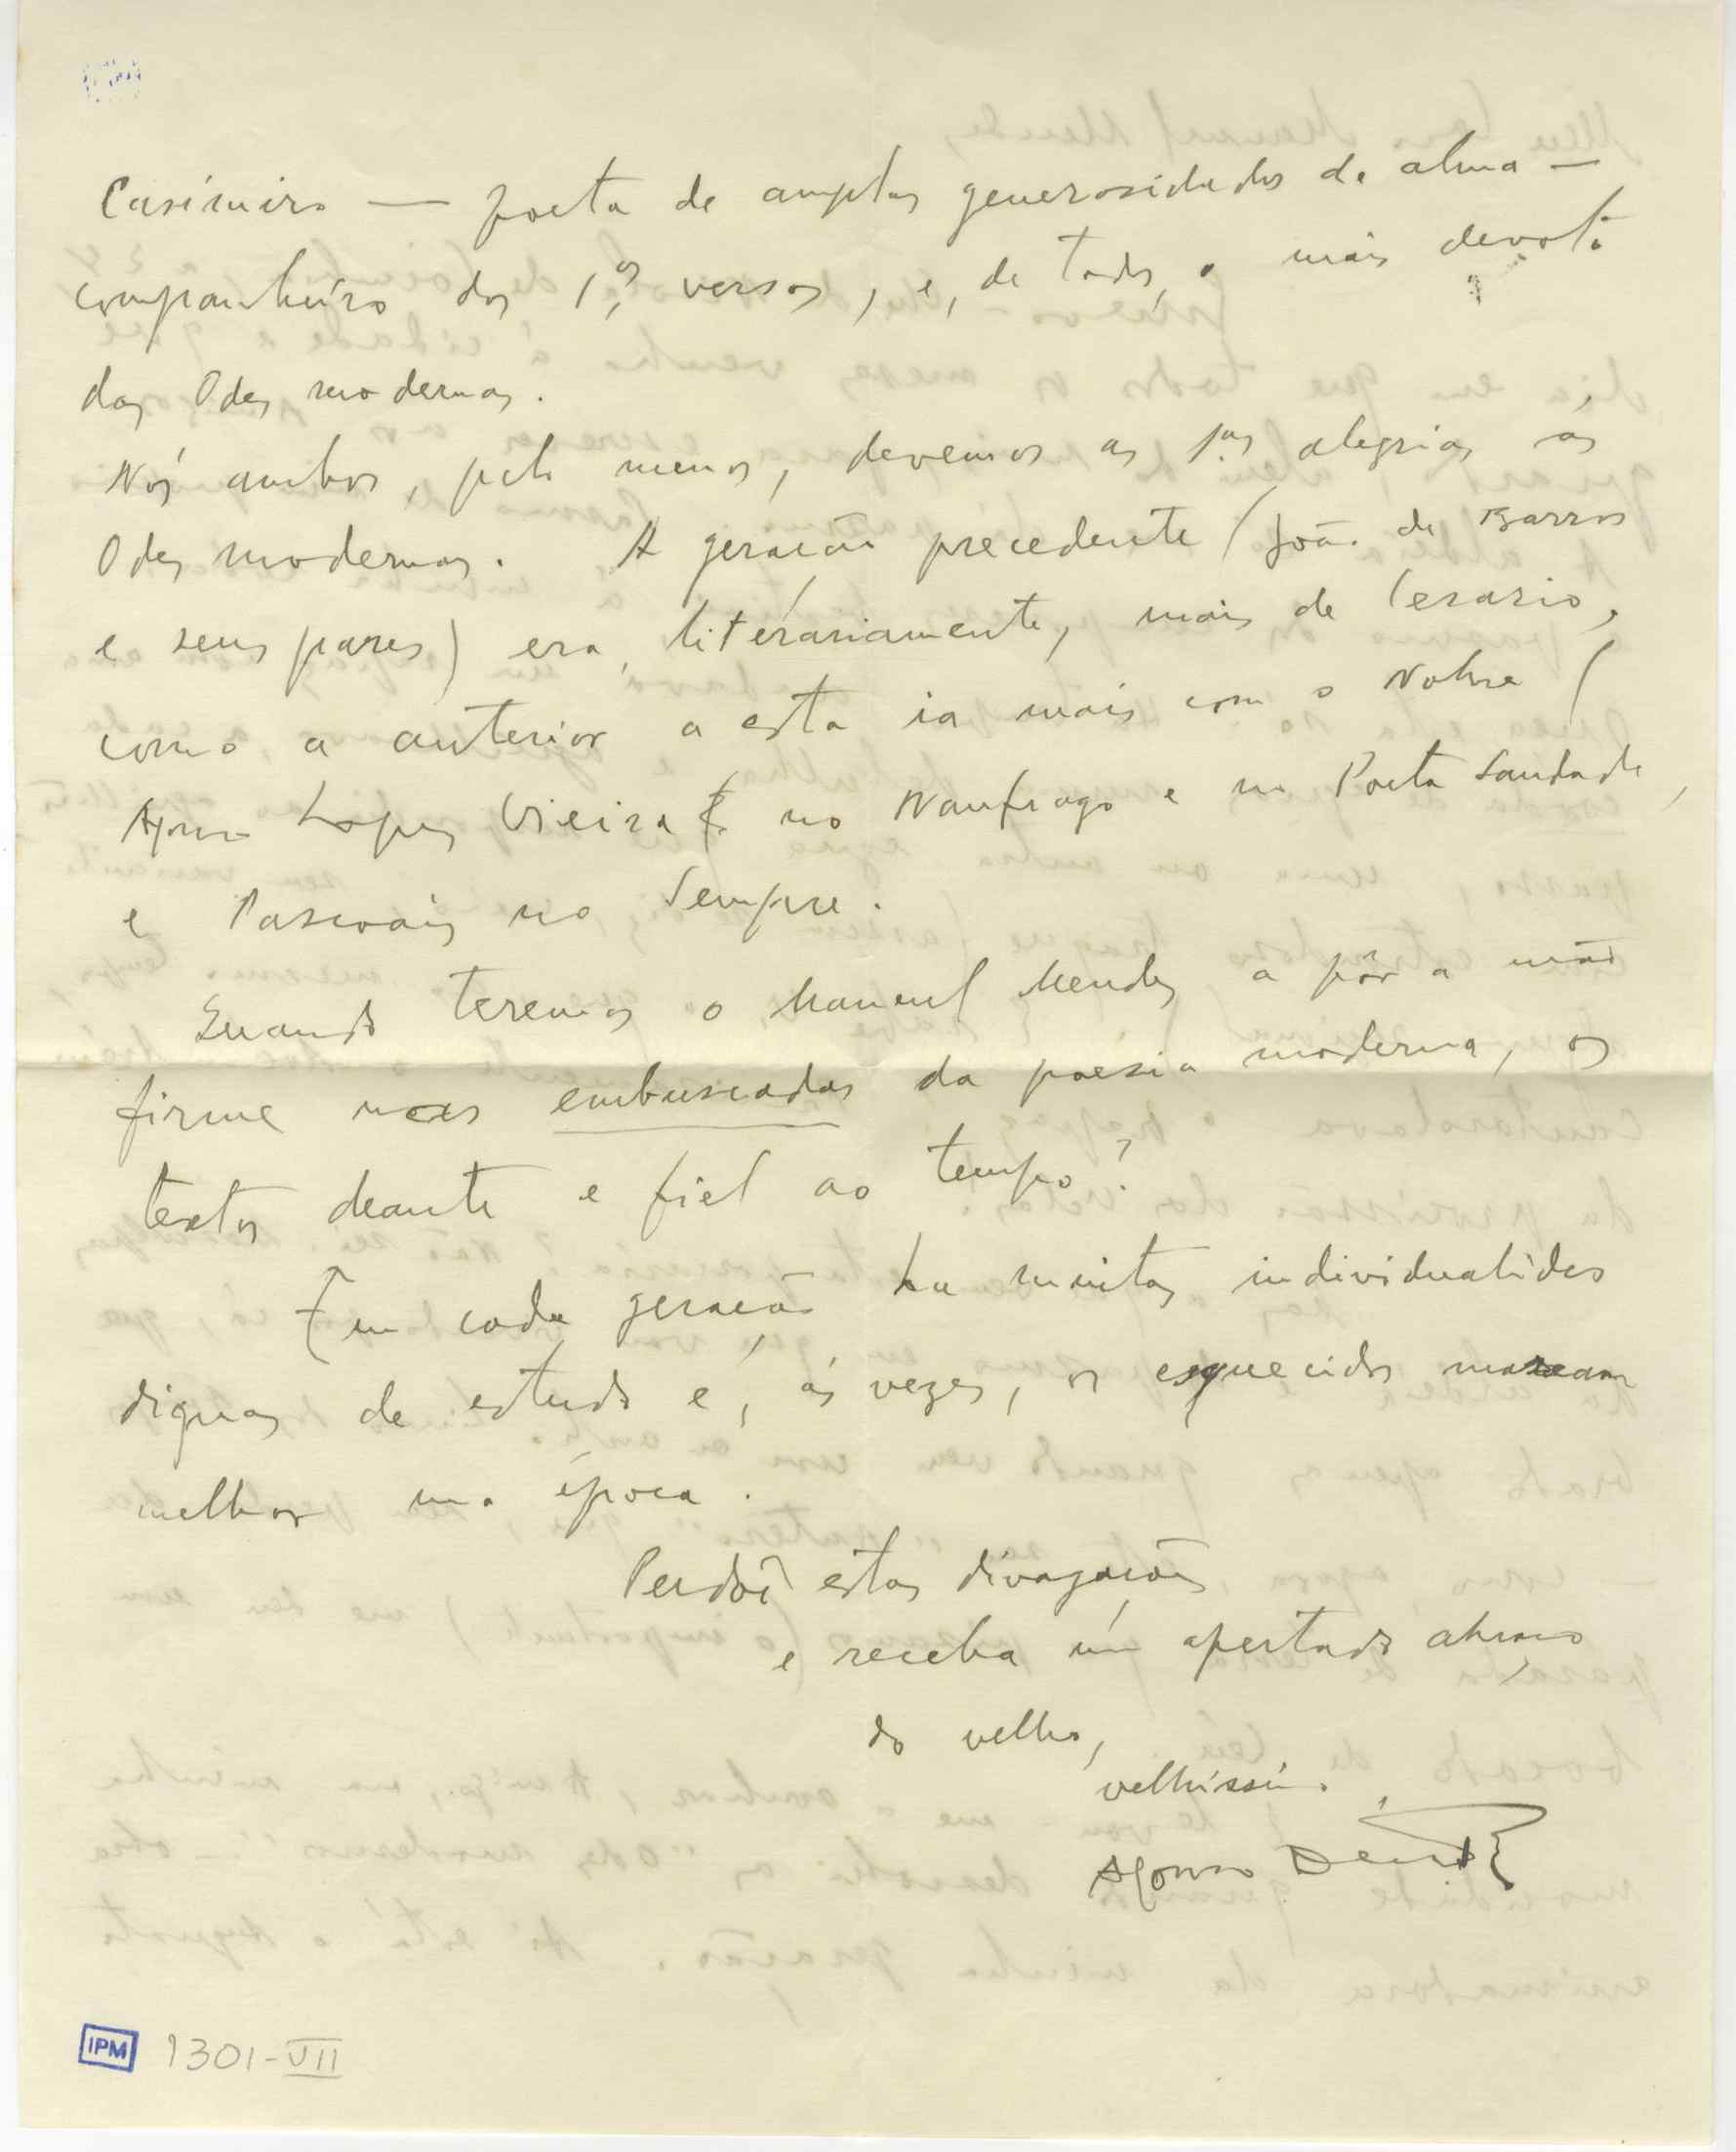 Casimiro — poeta de amplas generosidades de alma —
companheiro dos 1.os versos, e, de todos, o mais devoto
das Odes modernas.
Nós ambos, pelo menos, devemos as 1.as alegrias ás
Odes modernas. A geração precedente (João de Barros
e seus pares) era, literáriamente, mais de Cesario,
como a anterior a esta ia mais com o Nobre (
Afonso Lopes Vieira no Naufrago e no Poeta Saudade,
e Pascoais no Sempre.
Quando teremos o Manuel Mendes a pôr a mão
firme nas embuscadas da poesia moderna, os
textos deante e fiel ao tempo?
Em cada geração ha muitas individualides
dignas de estudo e, ás vezes, os esquecidos marcam
melhor uma época.
Perdôe estas divagações
e receba um apertado abraço
do velho,
velhíssimo
Afonso Duarte
IPM 1301-VII